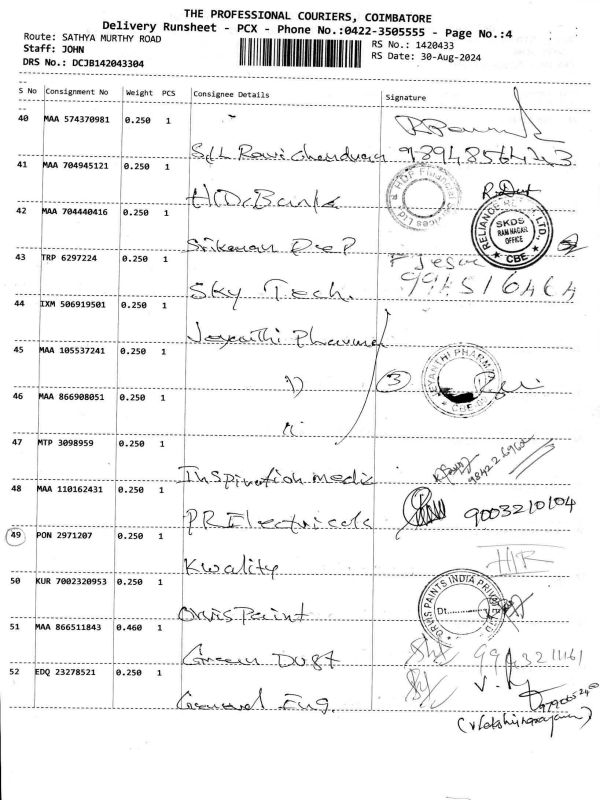 THE PROFESSIONAL COURIERS, COIMBATORE
Delivery Runsheet - PCX - Phone No.:0422-3505555 - Page No.:4
Route: SATHYA MURTHY ROAD
Staff: JOHN
RS No.: 1420433
DRS No.: DCJB142043304
RS Date: 30-Aug-2024
S No Consignment No Weight PCS Consignee Details Signature
40 MAA 574370981 0.250 1
S/L Ravichandran 9894856423
41 MAA 704945121 0.250 1
HDBank
HDF Financial Services Ltd
42 MAA 704440416 0.250 1
RELIANCE RETAIL LTD.
SKDS
RAM NAGAR
OFFICE
CBE
Srikaran Dep
43 TRP 6297224 0.250 1
F Jesu
Sky Tech.
994516464
44 IXM 506919501 0.250 1
Jeyanthi Pharma
45 MAA 105537241 0.250 1
JEYANTHI PHARMA
CBE
3
11
46 MAA 866908051 0.250 1
11
47 MTP 3098959 0.250 1
9842226962
Inspiration medic
48 MAA 110162431 0.250 1
PR Electricals 9003210104
49 PON 2971207 0.250 1
Kwality
H/R
50 KUR 7002320953 0.250 1
ORVIS PAINTS INDIA PRIVATE LTD.
Dt..........
Orvis Paint
51 MAA 866511843 0.460 1
Green Dust 9943211161
52 EDQ 23278521 0.250 1
General Eng.
(V Lakshminarayanan)